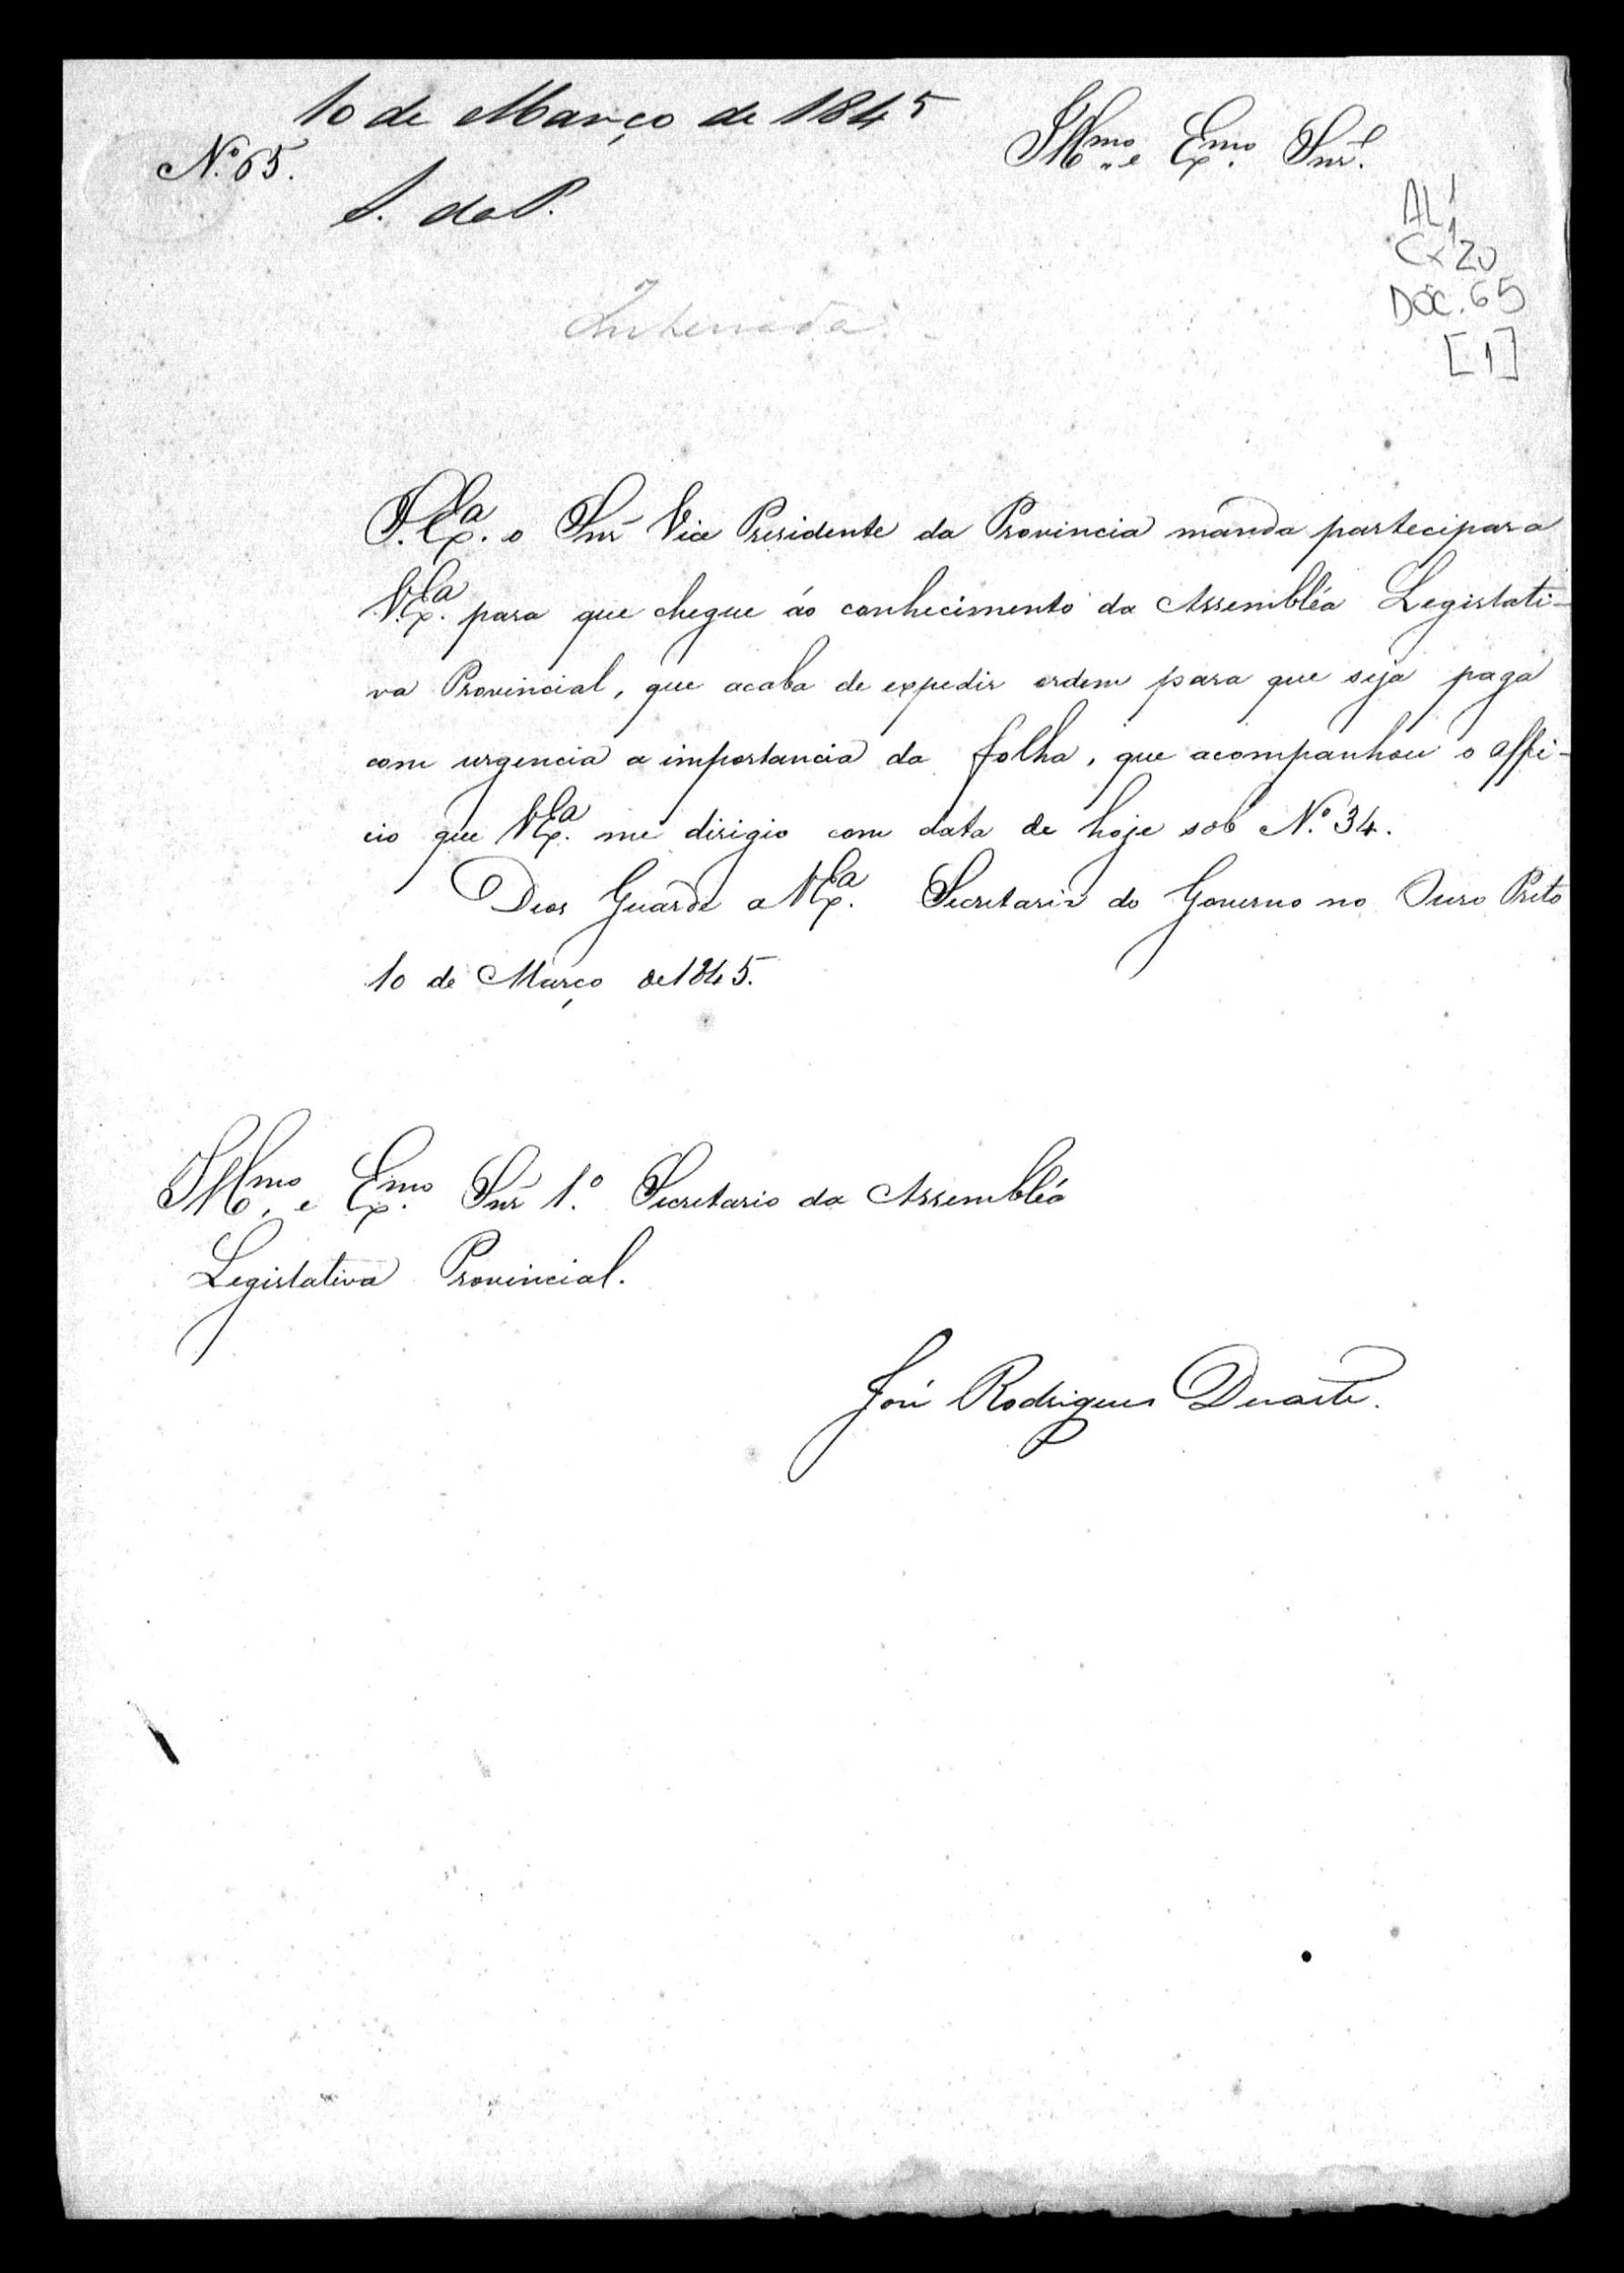 10 de Março de 1845
Illmo. e Exmo. Snr.
N.º 65.
S. da P.
AL 1
Cx 20
DOC. 65
[1]
Inteirada
S. Exa. o Snr Vice Presidente da Provincia manda partecipar a
V. Exa. para que chegue áo conhecimento da Assembléa Legislati-
va Provincial, que acaba de expedir ordem para que seja paga
com urgencia a importancia da folha, que acompanhou o offi-
cio que V. Exa. me dirigio com data de hoje sob N.º 34.
Deos Guarde a V. Exa. Secretaria do Governo no Ouro Preto
10 de Março de 1845.
Illmo. e Exmo. Snr 1.º Secretario da Assembléa
Legislativa Provincial.
José Rodrigues Duarte.